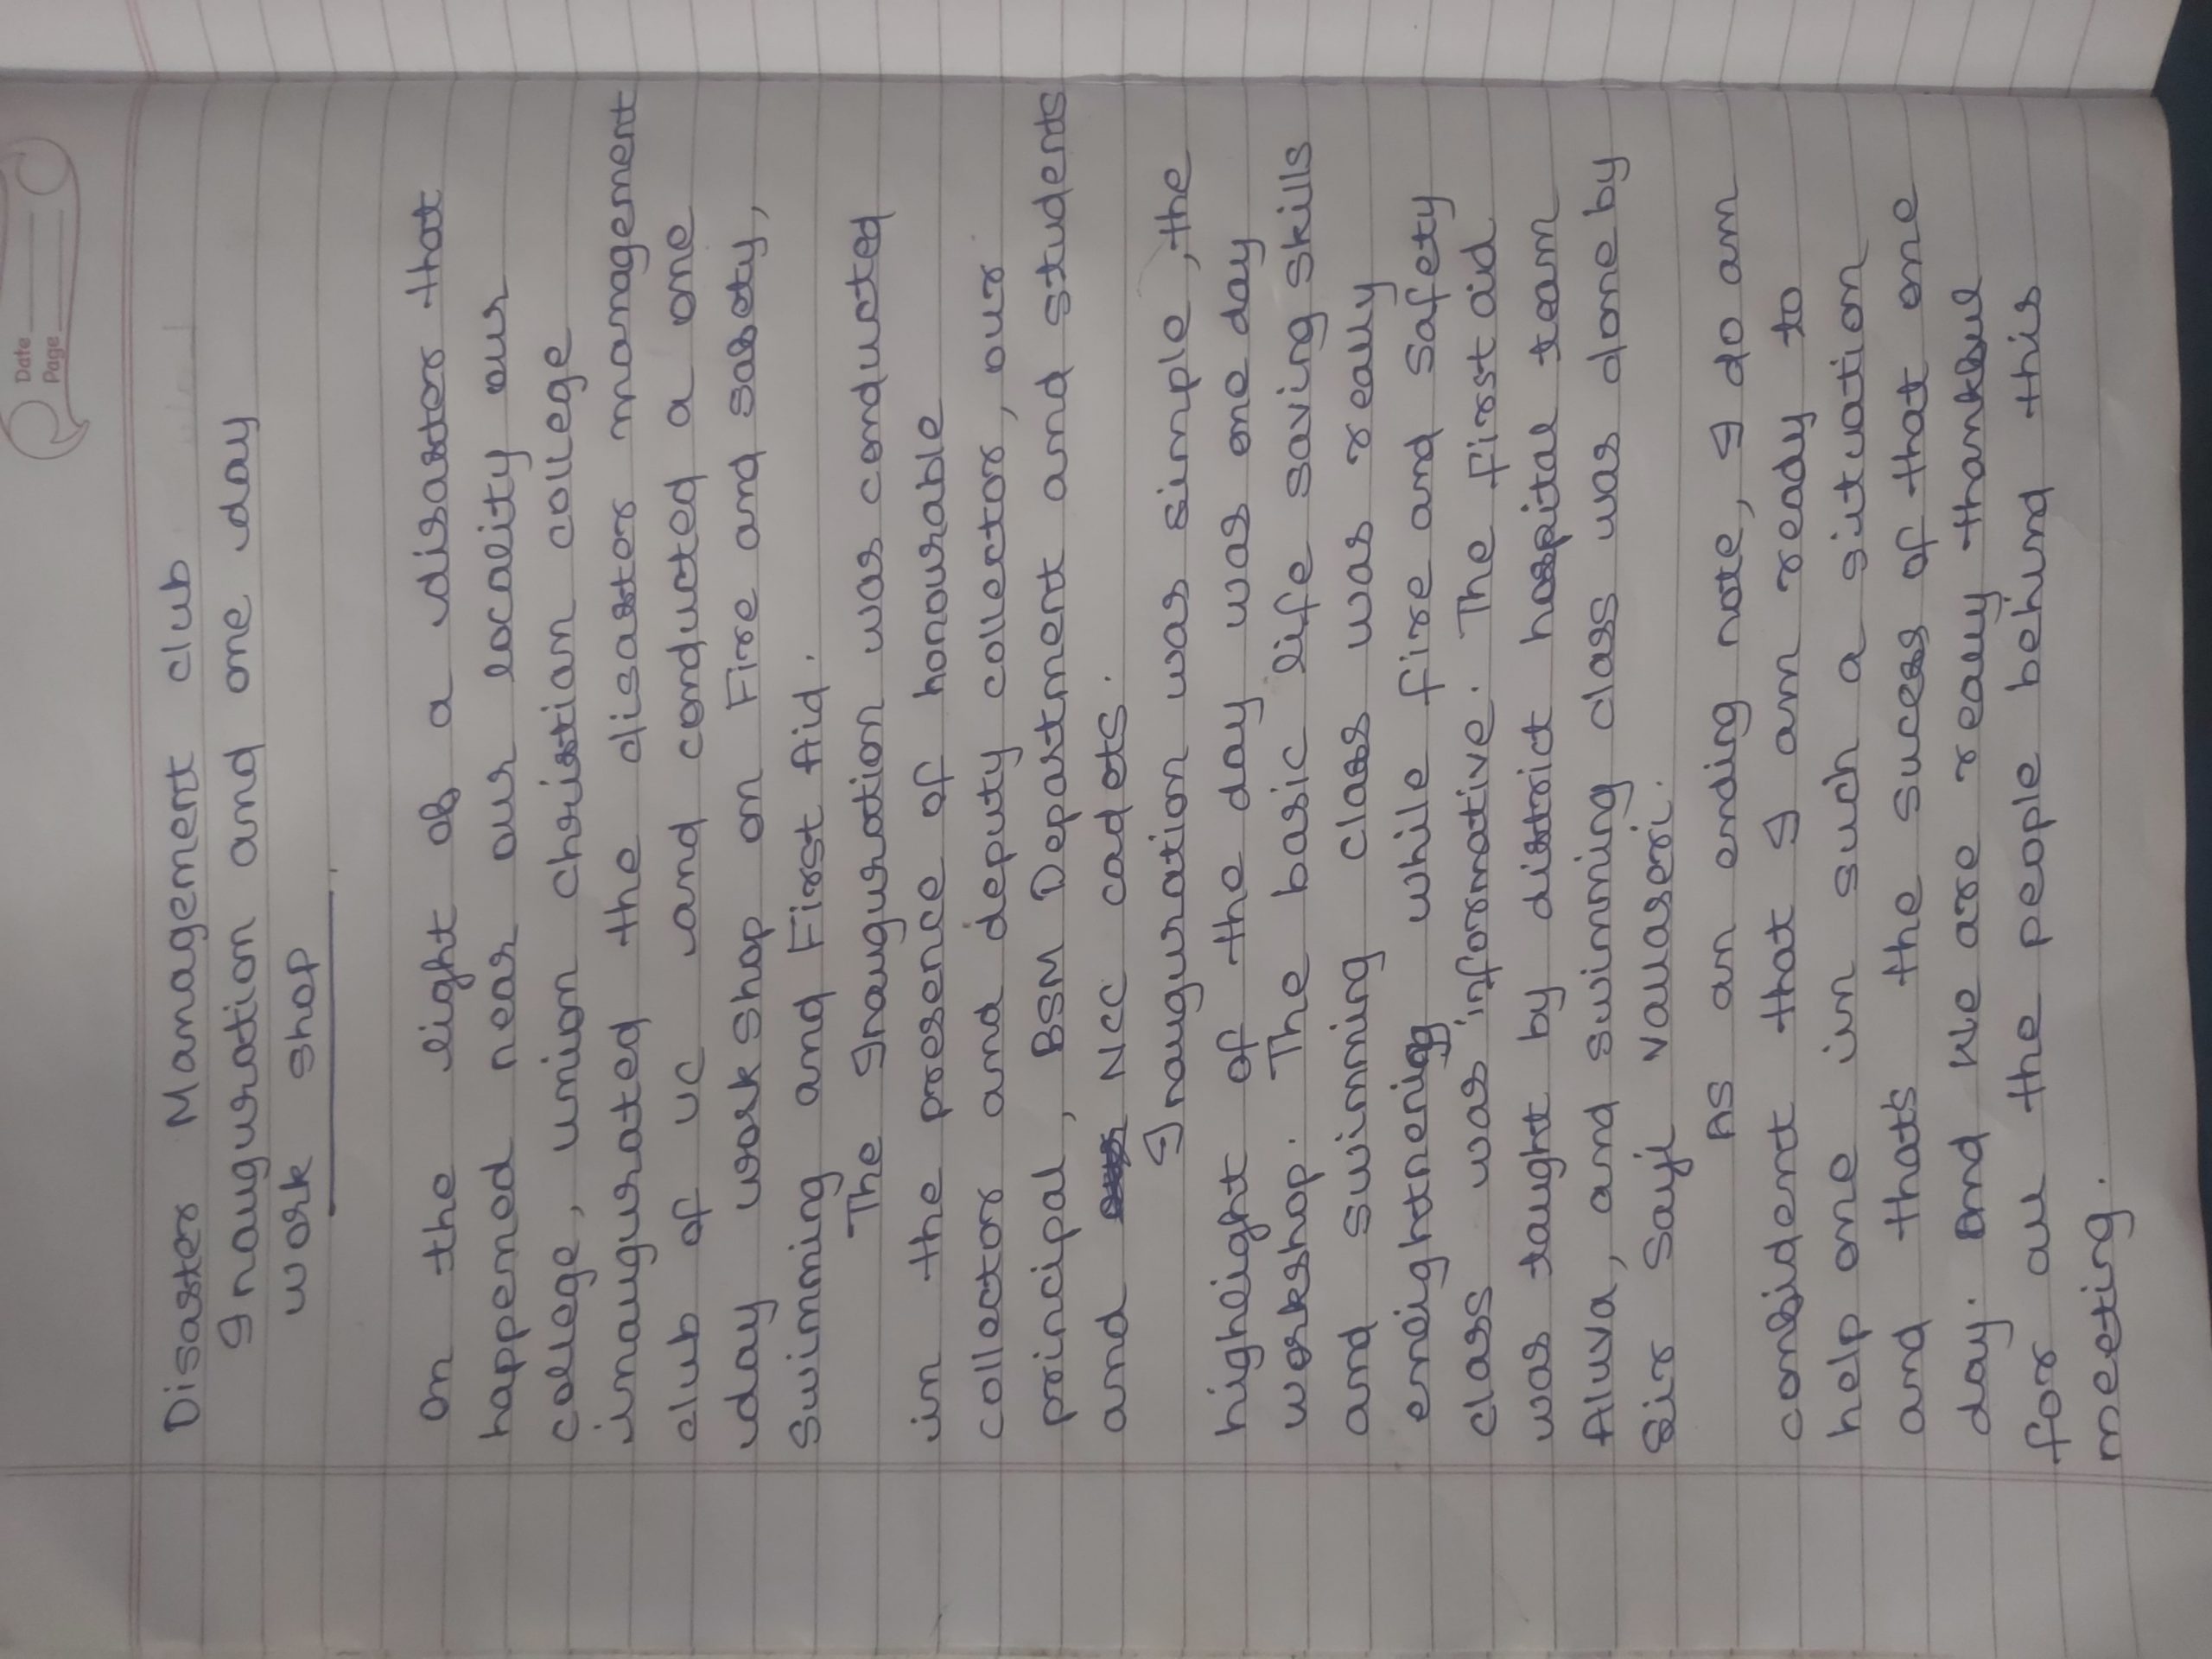 Date
Page
Disaster Management club
Inauguration and one day
work shop
on the light of a disaster that
happened near our locality our
college, union christian college
inaugurated the disaster management
club of uc and conducted a one
day work shop on Fire and safety,
Swimming and First Aid.
The Inauguration was conducted
in the presence of honourable
collector and deputy collector, our
principal, BSM Department and students
and NCC cadets.
Inauguration was simple, the
highlight of the day was one day
workshop. The basic life saving skills
and swimming class was really
enlightening while fire and safety
class was informative. The first aid
was taught by district hospital team
Aluva, and swimming class was done by
Sir Sayi Vallaseri.
As an ending note, I do am
confident that I am ready to
help one in such a situation
and thats the sucess of that one
day. And we are really thankful
for all the people behind this
meeting.